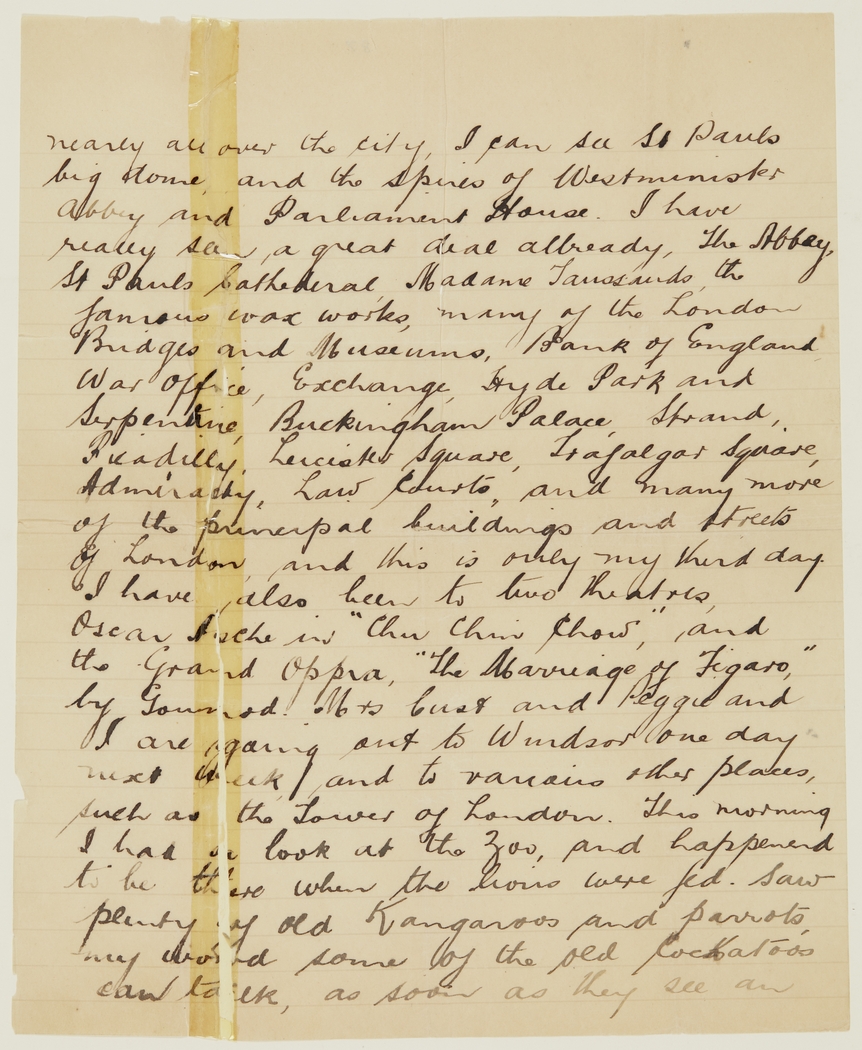 nearly all over the city, I can see St Pauls
big dome, and the spires of Westminister
Abbey and Parliament House. I have
really seen a great deal allready, The Abbey,
St Pauls Cathederal, Madame Taussauds, the
famous wax works, many of the London
Bridges and Museums, Bank of England,
War Office, Exchange, Hyde Park and
Serpentine, Buckingham Palace, Strand,
Picadilly, Leicister Square, Trafalgar Square,
Admiralty, Law Courts, and many more
of the principal buildings and streets
of London, and this is only my third day.
I have also been to two theatres,
Oscar Asche in "Chu Chin Chow", and
the Grand Oppra, "The Marriage of Figaro,"
by Gounod. Mrs Cust and Peggie and
I are going out to Windsor one day
next week, and to various other places,
such as the Tower of London. This morning
I had a look at the Zoo, and happenend
to be there when the lions were fed. Saw
plenty of old Kangaroos and parrots,
my word some of the old Cockatoos
can talk, as soon as they see an